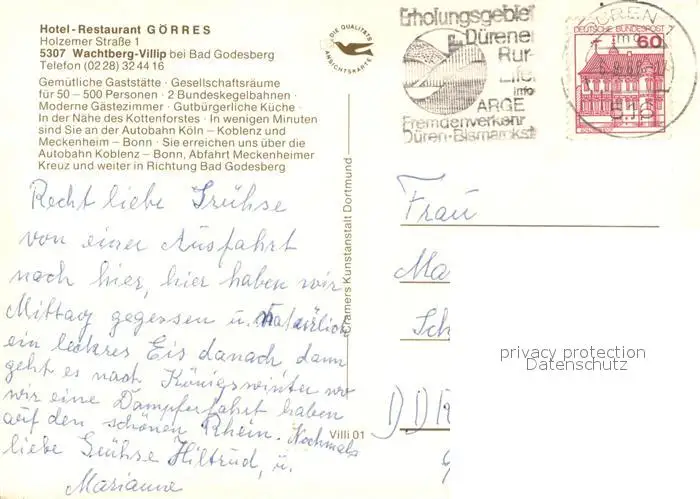 Hotel-Restaurant GÖRRES
Holzemer Straße 1
5307 Wachtberg-Villip bei Bad Godesberg
Telefon (02 28) 32 44 16
Gemütliche Gaststätte · Gesellschaftsräume
für 50 – 500 Personen · 2 Bundeskegelbahnen ·
Moderne Gästezimmer · Gutbürgerliche Küche ·
In der Nähe des Kottenforstes · In wenigen Minuten
sind Sie an der Autobahn Köln – Koblenz und
Meckenheim – Bonn · Sie erreichen uns über die
Autobahn Koblenz – Bonn, Abfahrt Meckenheimer
Kreuz und weiter in Richtung Bad Godesberg
Recht liebe Grühse
von einer Ausfahrt
nach hier, hier haben wir
Mittag gegessen u. Natürlich
ein leckres Eis danach dann
geht es nach Königswinter wo
wir eine Dampferfahrt haben
auf den schönen Rhein. Nochmals
liebe Grühse Hiltrud, u.
Marianne
DIE QUALITÄTS
ANSICHTSKARTE
Cramers Kunstanstalt Dortmund
Villi 01
Erholungsgebiet
Dürener
Rur-
Eifel
info
ARGE
Fremdenverkehr
Düren·Bismarckstr
DEUTSCHE BUNDESPOST
60
DÜREN 1
516
Frau
Ma
Sch
DDR
privacy protection
Datenschutz